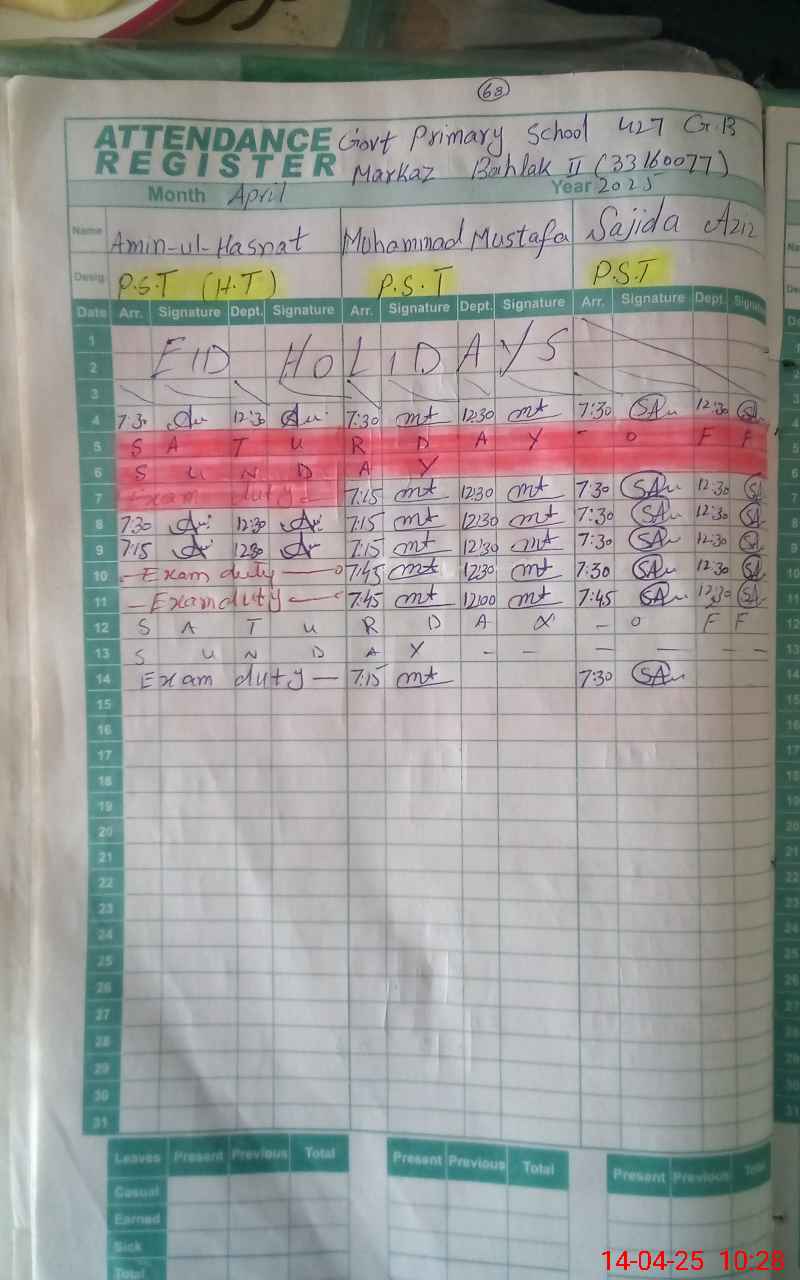 68
ATTENDANCE REGISTER Govt Primary School 427 G.B
Markaz Bahlak II (33160077)
Month April Year 2025
Name Amin-ul-Hasnat Muhammad Mustafa Sajida Aziz
Desig. P.S.T (H.T) P.S.T P.S.T
Date Arr. Signature Dept. Signature Arr. Signature Dept. Signature Arr. Signature Dept. Signature
1
2 EID HOLIDAYS
3
4 7:30 12:30 7:30 mt 12:30 mt 7:30 SA 12:30 SA
5 S A T U R D A Y - O F F
6 S U N D A Y
7 Exam duty 7:15 mt 12:30 mt 7:30 SA 12:30 SA
8 7:30 12:30 7:15 mt 12:30 mt 7:30 SA 12:30 SA
9 7:15 12:30 7:15 mt 12:30 mt 7:30 SA 12:30 SA
10 - Exam duty - 7:45 mt 12:30 mt 7:30 SA 12:30 SA
11 - Exam duty - 7:45 mt 12:00 mt 7:45 SA 12:30 SA
12 S A T U R D A Y - O F F
13 S U N D A Y - - - - - -
14 Exam duty - 7:15 mt 7:30 SA
15
16
17
18
19
20
21
22
23
24
25
26
27
28
29
30
31
Leaves Present Previous Total Present Previous Total Present Previous Total
Casual
Earned
Sick
Total
14-04-25 10:28